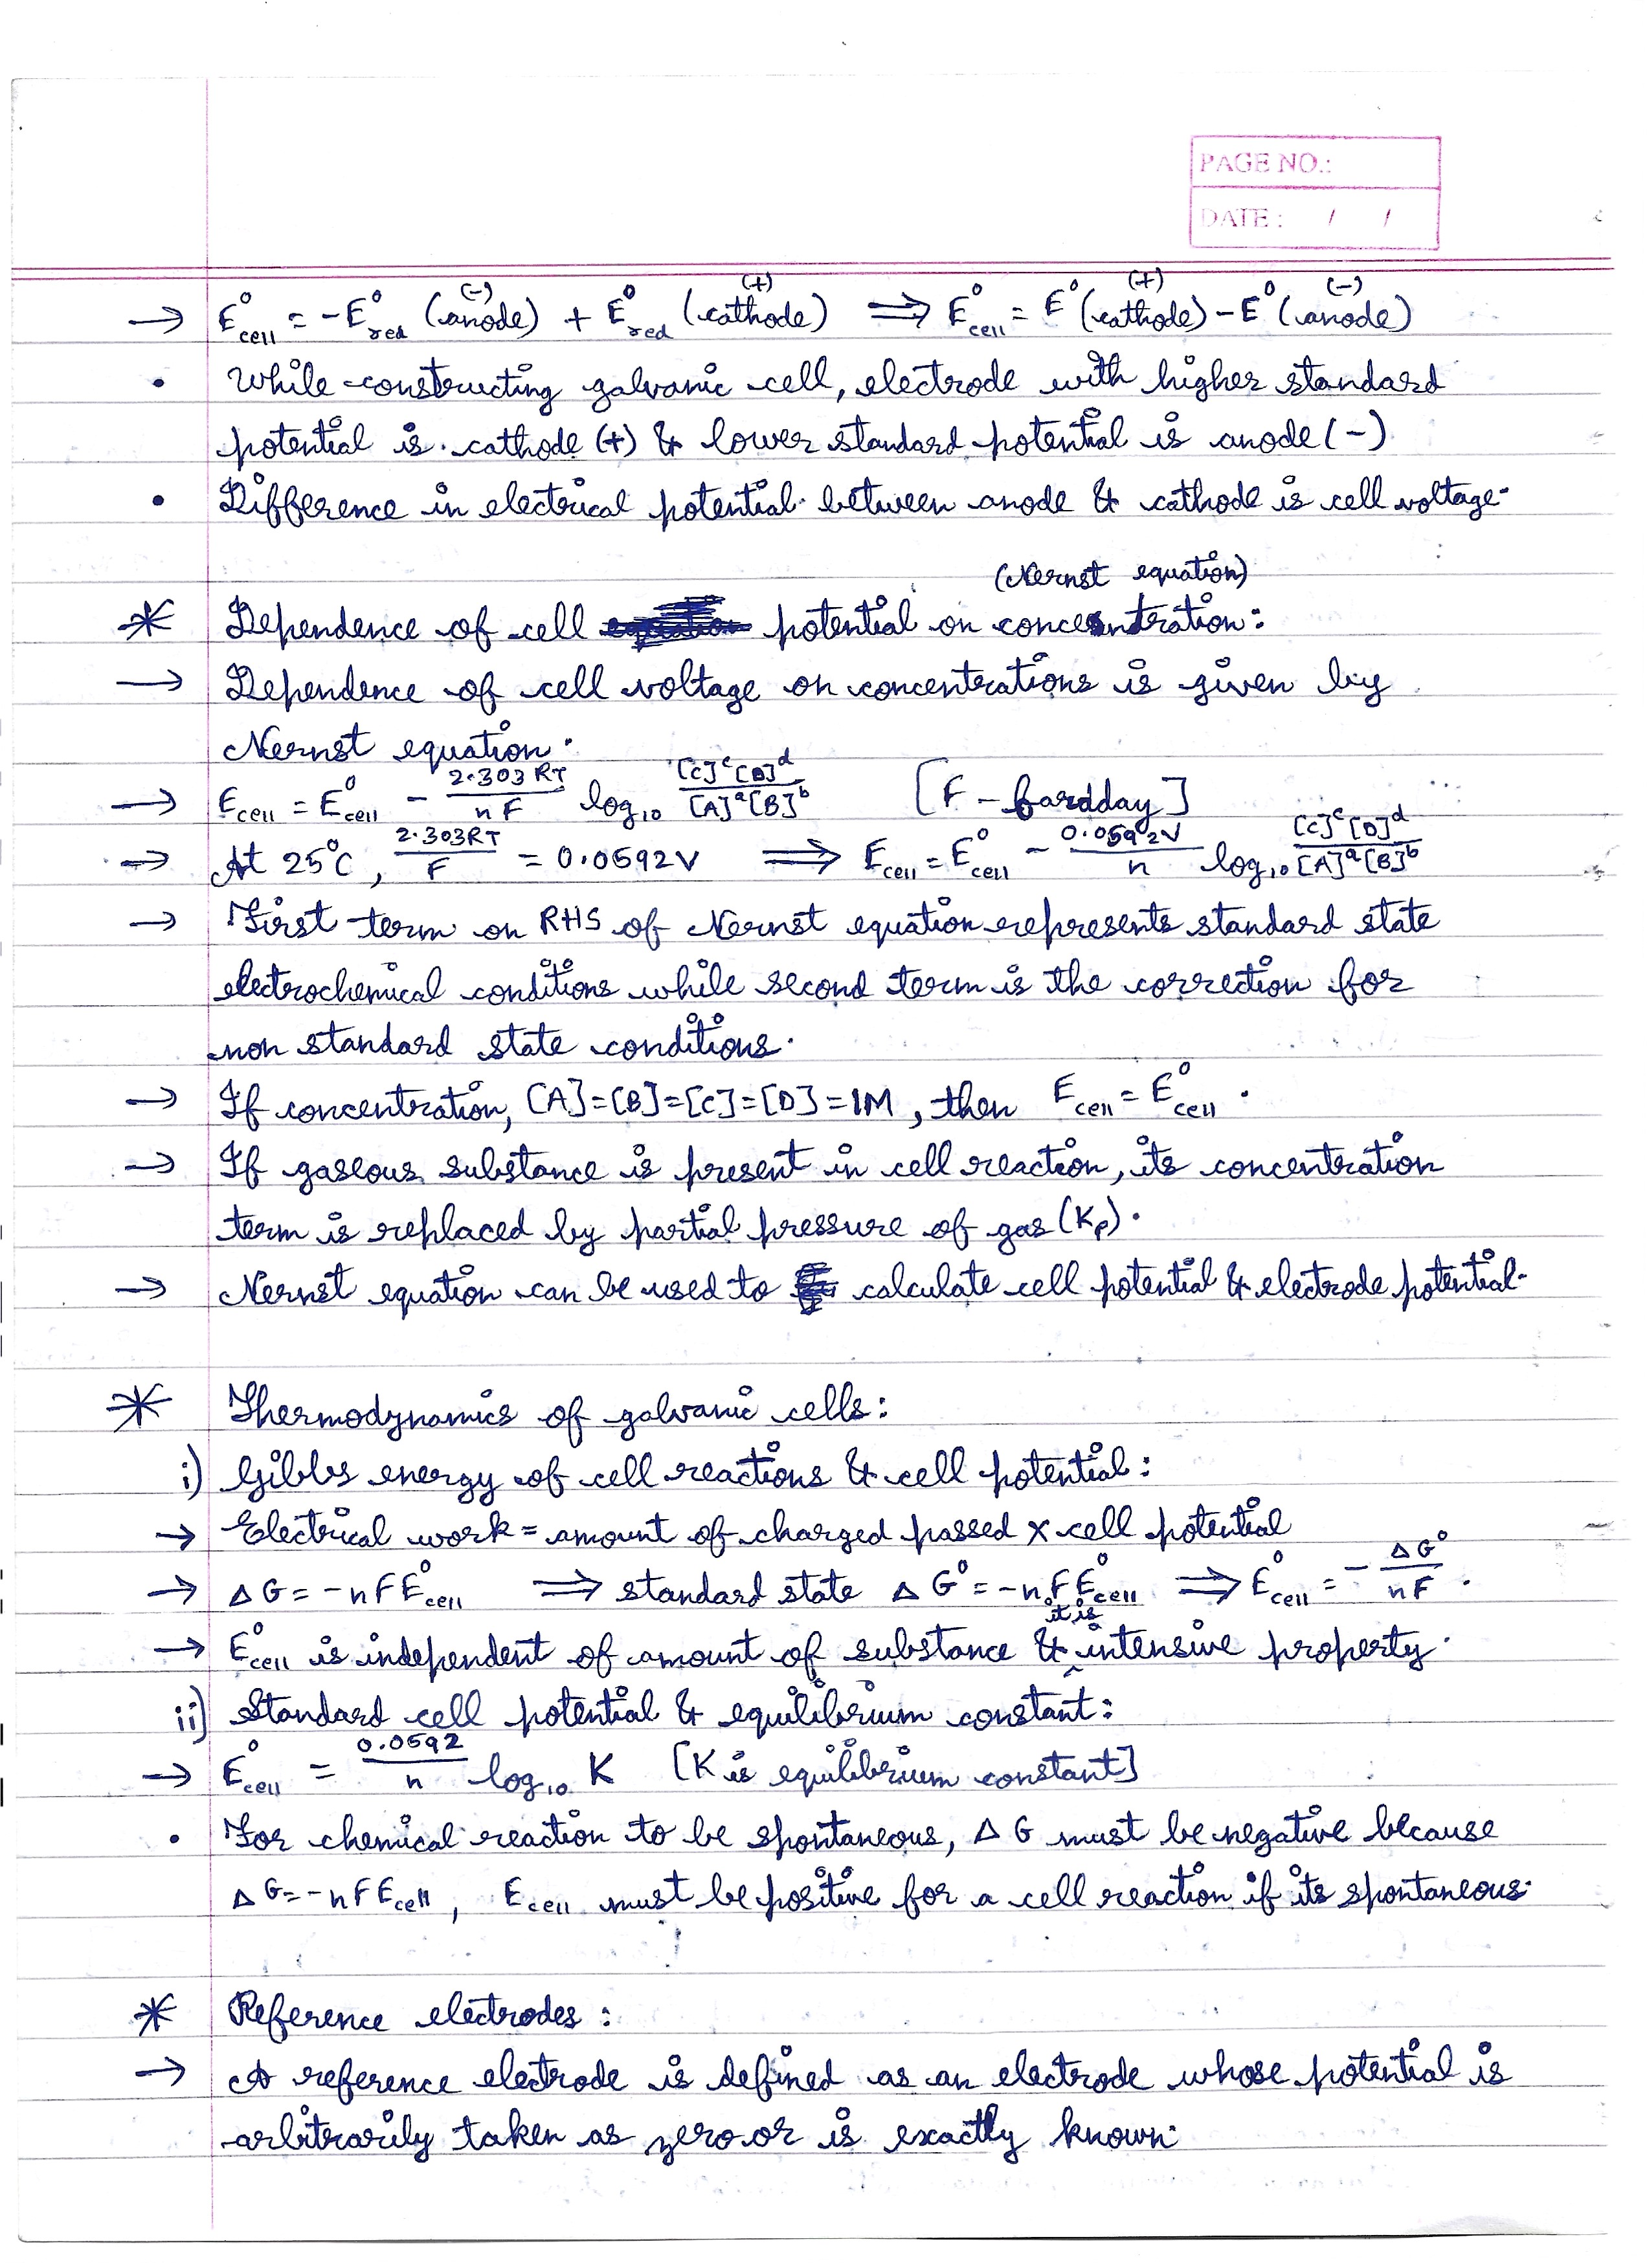 PAGE NO.:
DATE: / /
→ E°cell = -E°red (anode)(-) + E°red (cathode)(+) ⇒ E°cell = E°(cathode)(+) - E°(anode)(-)
• While constructing galvanic cell, electrode with higher standard
potential is cathode (+) & lower standard potential is anode (-)
• Difference in electrical potential between anode & cathode is cell voltage.
(Nernst equation)
* Dependence of cell potential on concentration:
→ Dependence of cell voltage on concentrations is given by
Nernst equation.
→ Ecell = E°cell - 2.303 RT/nF log10 [C]^c [D]^d/[A]^a [B]^b [F - fardday]
→ At 25°C, 2.303RT/F = 0.0592V ⇒ Ecell = E°cell - 0.0592V/n log10 [C]^c [D]^d/[A]^a [B]^b
→ First term on RHS of Nernst equation represents standard state
electrochemical conditions while second term is the correction for
non standard state conditions.
→ If concentration, [A]=[B]=[C]=[D]=1M, then Ecell = E°cell.
→ If gaseous substance is present in cell reaction, its concentration
term is replaced by partial pressure of gas (Kp).
→ Nernst equation can be used to calculate cell potential & electrode potential.
* Thermodynamics of galvanic cells:
i) Gibbs energy of cell reactions & cell potential:
→ Electrical work = amount of charged passed × cell potential
→ ΔG = -nFE°cell ⇒ standard state ΔG° = -nFE°cell ⇒ E°cell = -ΔG°/nF.
→ E°cell is independent of amount of substance & it is intensive property.
ii) Standard cell potential & equilibrium constant:
→ E°cell = 0.0592/n log10 K [K is equilibrium constant]
• For chemical reaction to be spontaneous, ΔG must be negative because
ΔG = -nFEcell, Ecell must be positive for a cell reaction if its spontaneous.
* Reference electrodes:
→ A reference electrode is defined as an electrode whose potential is
arbitrarily taken as zero or is exactly known.